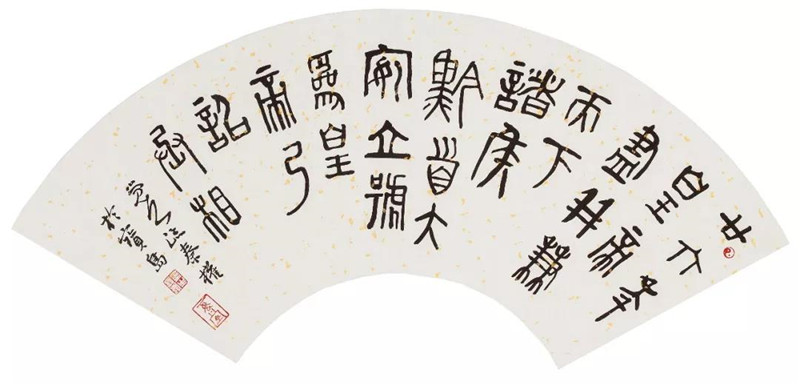 廿六年
皇帝
盡并兼
天下
諸侯
黔首大
安立號
為皇
帝乃
詔相
丞
临秦權
於寶島